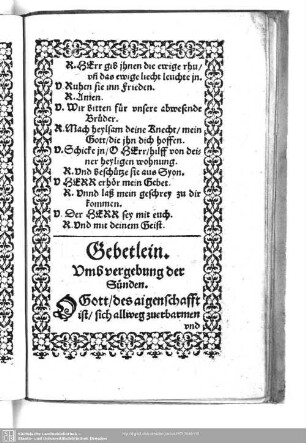 R. HErr gib jhnen die ewige rhu/
vñ das ewige liecht leuchte jn.
V. Ruhen sie inn Frieden.
R. Amen.
V. Wir bitten für vnsere abwesende
Brüder.
R. Mach heylsam deine Knecht/ mein
Gott/ die jhn dich hoffen.
V. Schicke jn/ O HErr/ hilff von dei=
ner heyligen wohnung.
R. Vnd beschütze sie aus Syon.
V HERR erhör mein Gebet.
R. Vnnd laß mein geschrey zu dir
kommen.
V. Der HERR sey mit euch.
R. Vnd mit deinem Geist.
Gebetlein.
Vmb vergebung der
Sünden.
O Gott/ des aigenschafft
ist/ sich allweg zuerbarmen
vnd